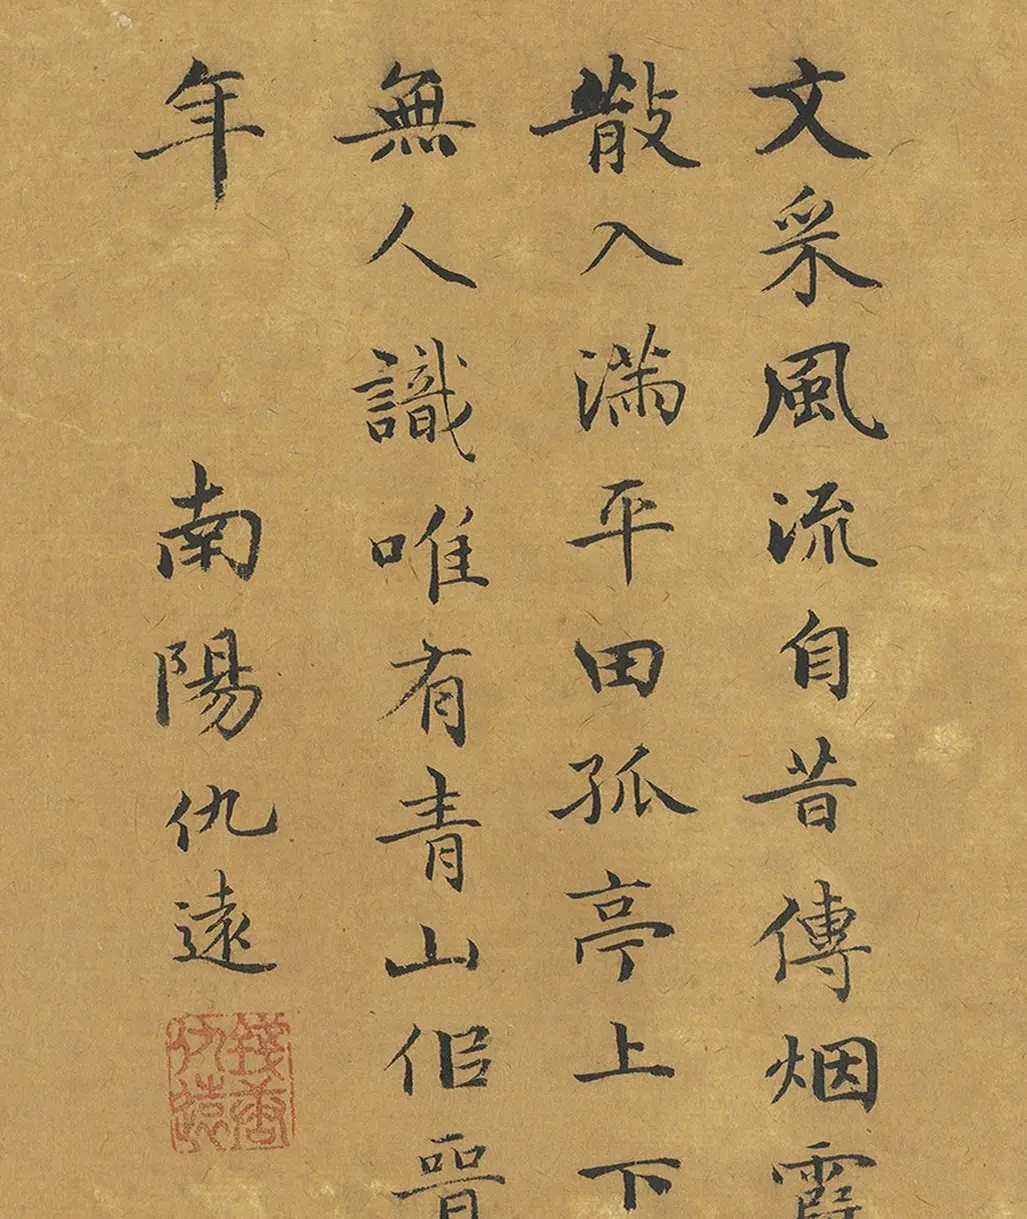 文采風流自昔傳烟霞
散入滿平田孤亭上下
無人識唯有青山佀晉
年 南陽仇遠
錢唐
仇遠